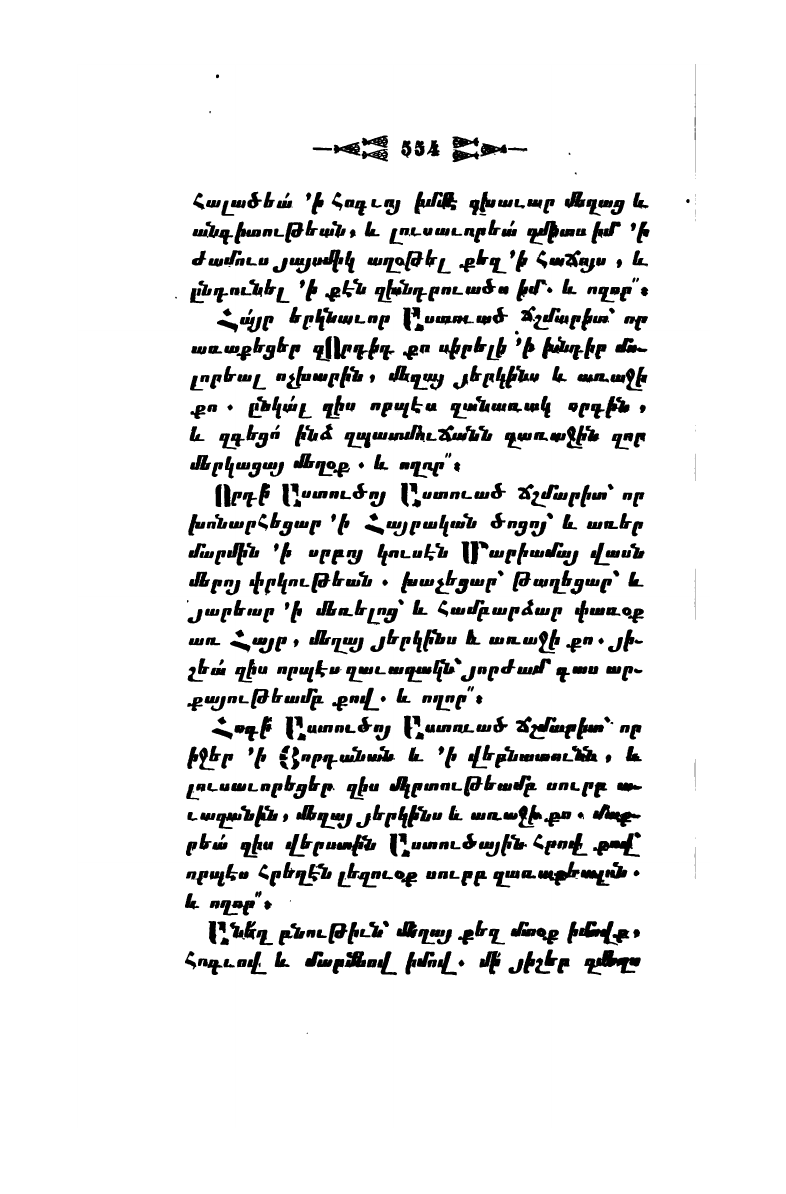 554
Հալածեա՛ ՚ի հոգւոյ իմմէ զխաւար մեղաց և
անգիտութեան, և լուսաւորեա՛ զմիտս իմ ՚ի
ժամուս յայսմիկ աղօթել քեզ ՚ի հաճոյս, և
ընդունել ՚ի քէն զխնդրուածս իմ. և ողոր՟։
Հա՛յր երկնաւոր Աստուած ճշմարիտ՝ որ
առաքեցեր զՈրդիդ քո սիրելի ՚ի խնդիր մո-
լորեալ ոչխարին, մեղայ յերկինս և առաջի
քո. ընկա՛լ զիս որպէս զանառակ որդին,
և զգեցո՛ ինձ զպատմուճանն զառաջին զոր
մերկացայ մեղօք. և ողոր՟։
Որդի՛ Աստուծոյ Աստուած ճշմարիտ՝ որ
խոնարհեցար ՚ի Հայրական ծոցոյ՝ և առեր
մարմին ՚ի սրբոյ կուսէն Մարիամայ վասն
մերոյ փրկութեան. խաչեցար՝ թաղեցար՝ և
յարեար ՚ի մեռելոց՝ և համբարձար փառօք
առ Հայր, մեղայ յերկինս և առաջի քո. յի-
շեա՛ զիս որպէս զաւազակն՝ յորժամ գաս ար-
քայութեամբ քով. և ողոր՟։
Հոգի՛ Աստուծոյ Աստուած ճշմարիտ՝ որ
իջեր ՚ի Յորդանան և ՚ի վերնատունն, և
լուսաւորեցեր զիս մկրտութեամբ սուրբ ա-
ւազանին, մեղայ յերկինս և առաջի քո. մաք-
րեա՛ զիս վերստին Աստուծային հրով քով՝
որպէս հրեղէն լեզուօք սուրբ զառաքեալսն.
և ողոր՟։
Անեղ բնութիւն՝ մեղայ քեզ մտօք իմովք,
հոգւով և մարմնով իմով. մի՛ յիշեր զմեղս